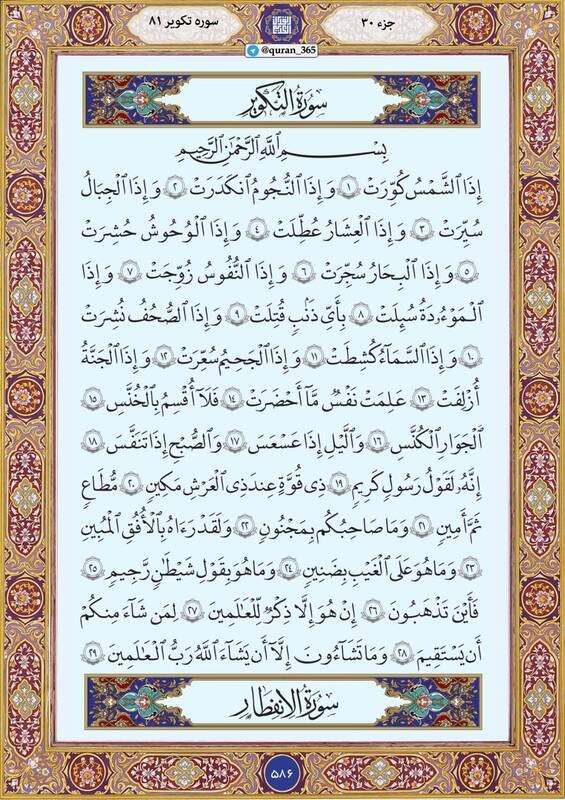 جزء ۳۰
سوره تکویر ۸۱
@quran_365
سُورَةُ التَّكْوِيرِ
بِسْمِ ٱللَّهِ ٱلرَّحْمَٰنِ ٱلرَّحِيمِ
إِذَا ٱلشَّمْسُ كُوِّرَتْ ۝۱ وَإِذَا ٱلنُّجُومُ ٱنكَدَرَتْ ۝۲ وَإِذَا ٱلْجِبَالُ
سُيِّرَتْ ۝۳ وَإِذَا ٱلْعِشَارُ عُطِّلَتْ ۝۴ وَإِذَا ٱلْوُحُوشُ حُشِرَتْ
۝۵ وَإِذَا ٱلْبِحَارُ سُجِّرَتْ ۝۶ وَإِذَا ٱلنُّفُوسُ زُوِّجَتْ ۝۷ وَإِذَا
ٱلْمَوْءُۥدَةُ سُئِلَتْ ۝۸ بِأَىِّ ذَنۢبٍ قُتِلَتْ ۝۹ وَإِذَا ٱلصُّحُفُ نُشِرَتْ
۝۱۰ وَإِذَا ٱلسَّمَآءُ كُشِطَتْ ۝۱۱ وَإِذَا ٱلْجَحِيمُ سُعِّرَتْ ۝۱۲ وَإِذَا ٱلْجَنَّةُ
أُزْلِفَتْ ۝۱۳ عَلِمَتْ نَفْسٌ مَّآ أَحْضَرَتْ ۝۱۴ فَلَآ أُقْسِمُ بِٱلْخُنَّسِ ۝۱۵
ٱلْجَوَارِ ٱلْكُنَّسِ ۝۱۶ وَٱلَّيْلِ إِذَا عَسْعَسَ ۝۱۷ وَٱلصُّبْحِ إِذَا تَنَفَّسَ ۝۱۸
إِنَّهُۥ لَقَوْلُ رَسُولٍ كَرِيمٍ ۝۱۹ ذِى قُوَّةٍ عِندَ ذِى ٱلْعَرْشِ مَكِينٍ ۝۲۰ مُّطَاعٍ
ثَمَّ أَمِينٍ ۝۲۱ وَمَا صَاحِبُكُم بِمَجْنُونٍ ۝۲۲ وَلَقَدْ رَءَاهُ بِٱلْأُفُقِ ٱلْمُبِينِ
۝۲۳ وَمَا هُوَ عَلَى ٱلْغَيْبِ بِضَنِينٍ ۝۲۴ وَمَا هُوَ بِقَوْلِ شَيْطَٰنٍ رَّجِيمٍ ۝۲۵
فَأَيْنَ تَذْهَبُونَ ۝۲۶ إِنْ هُوَ إِلَّا ذِكْرٌ لِّلْعَٰلَمِينَ ۝۲۷ لِمَن شَآءَ مِنكُمْ
أَن يَسْتَقِيمَ ۝۲۸ وَمَا تَشَآءُونَ إِلَّآ أَن يَشَآءَ ٱللَّهُ رَبُّ ٱلْعَٰلَمِينَ ۝۲۹
سُورَةُ الِانفِطَارِ
۵۸۶